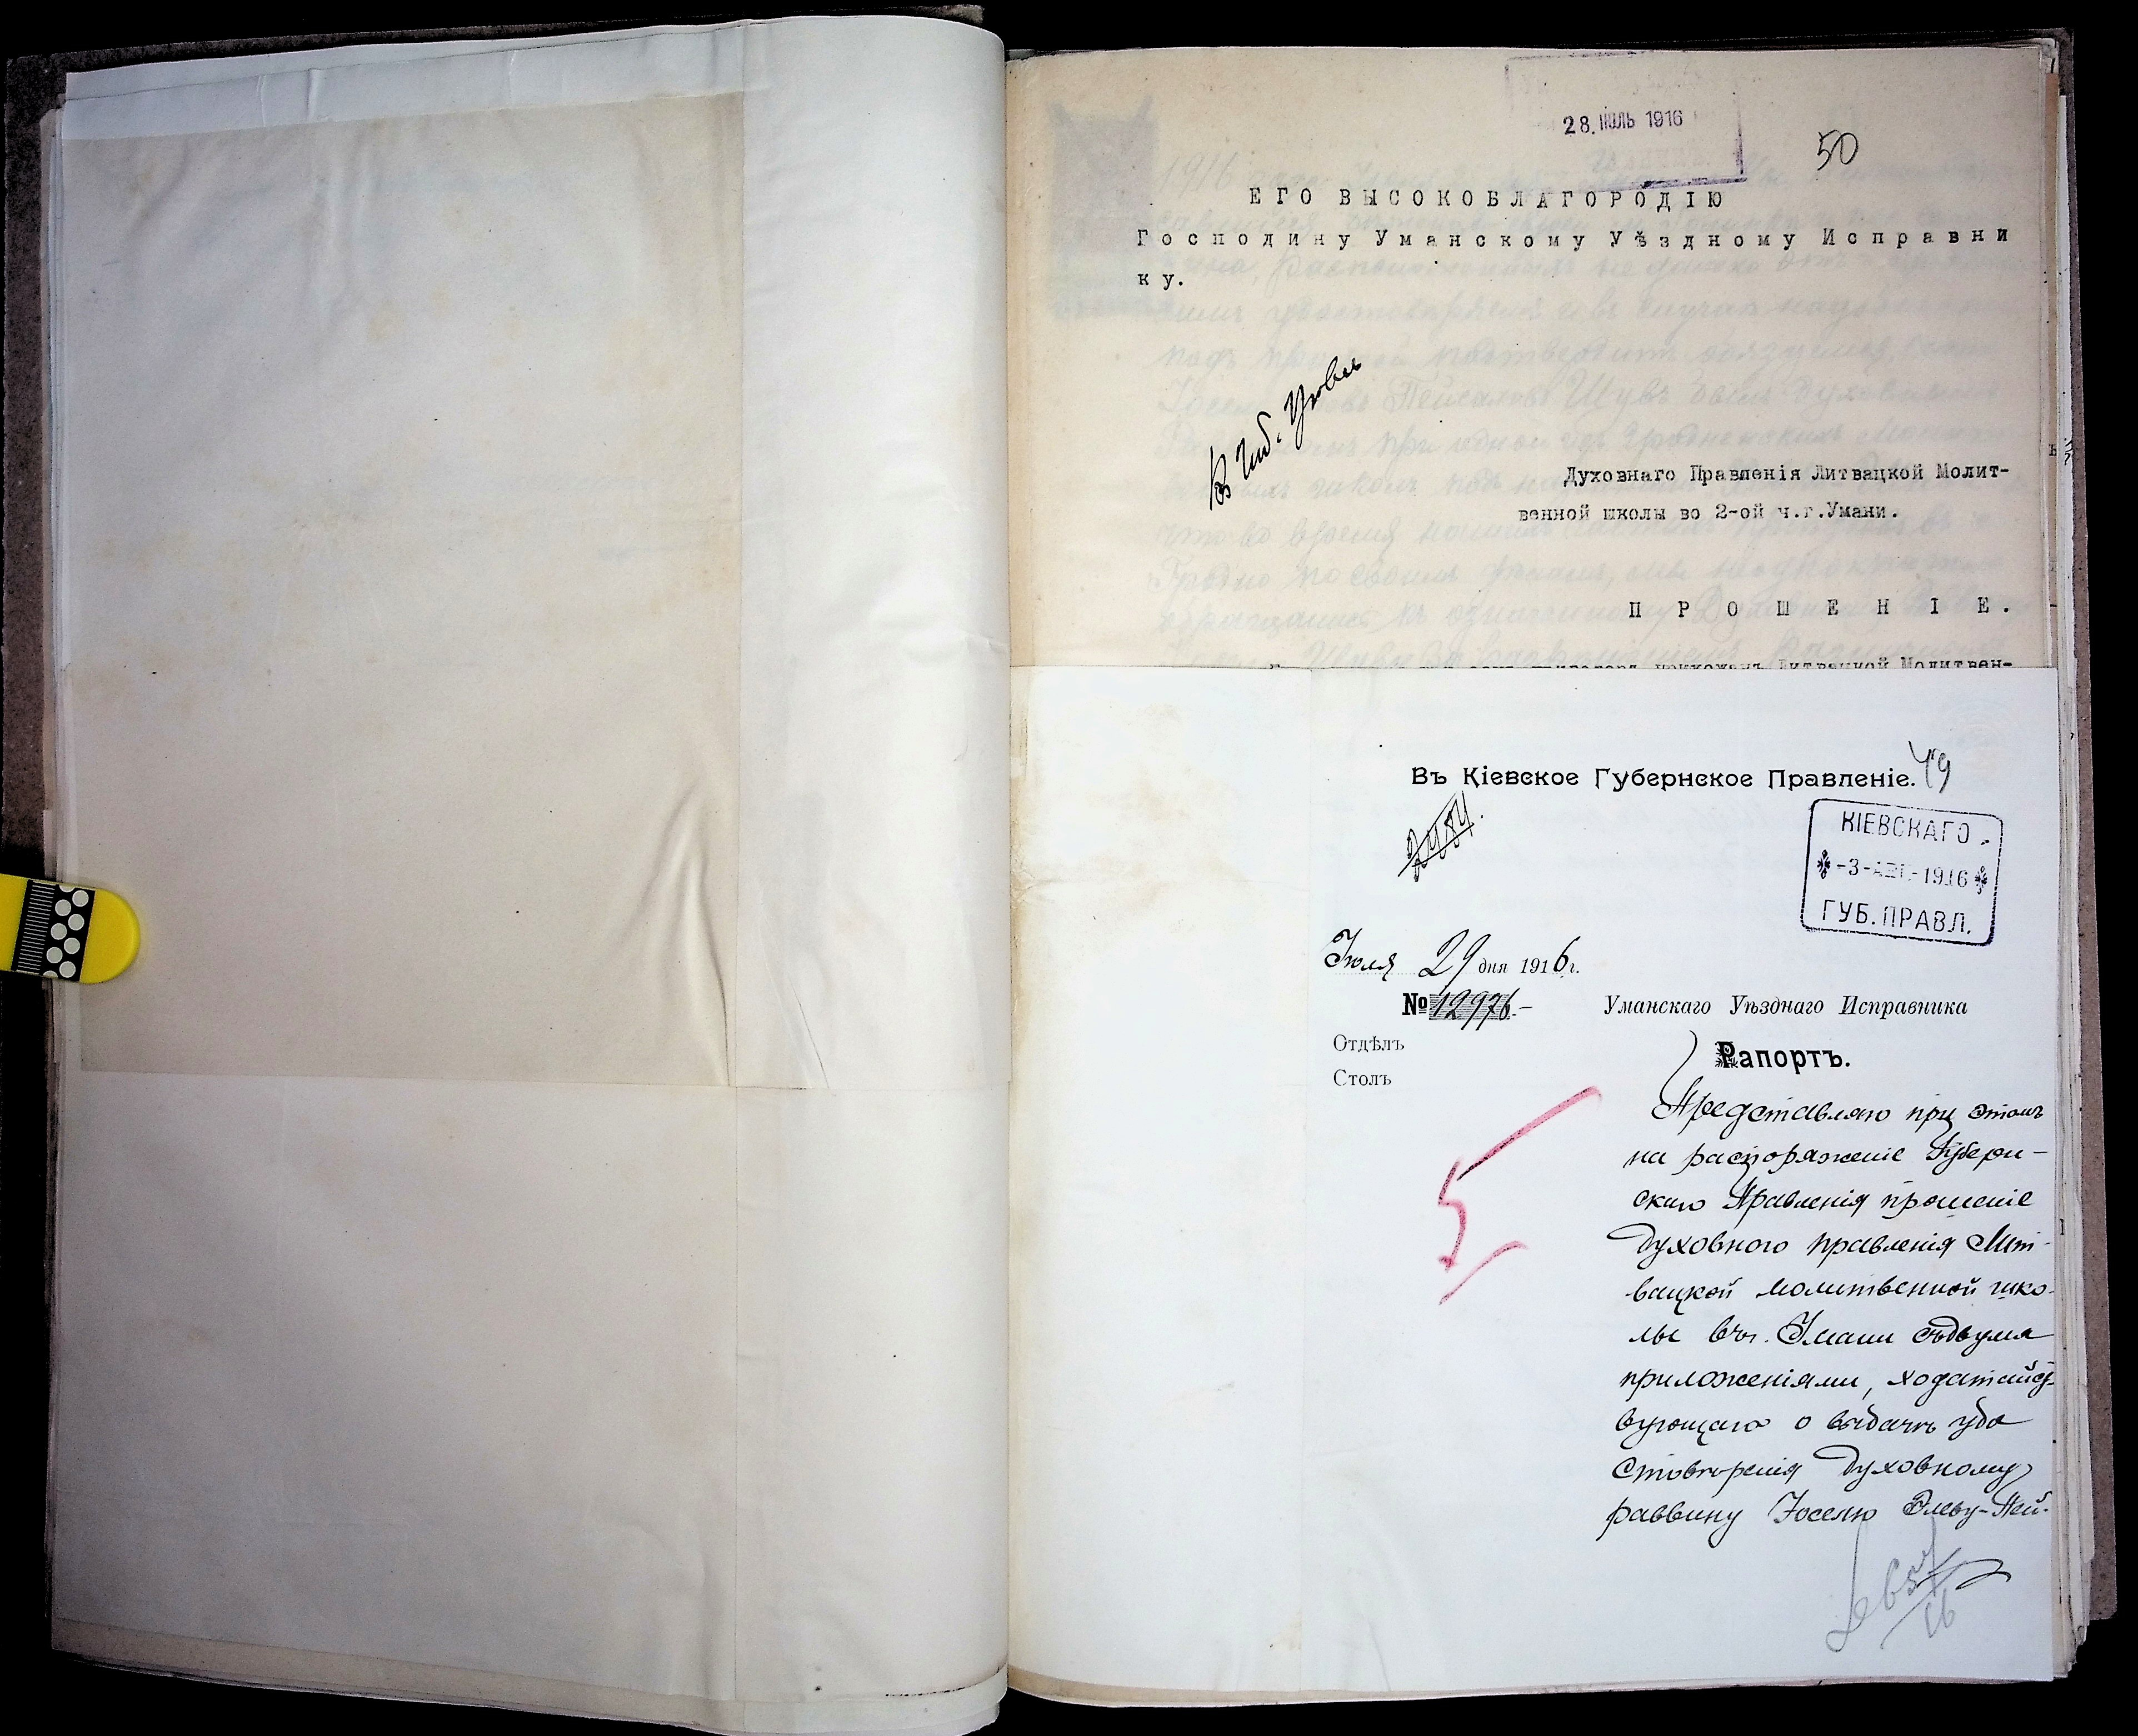 28. ІЮЛЬ 1916
50
ЕГО ВЫСОКОБЛАГОРОДІЮ
Господину Уманскому Уѣздному Исправни
ку.
В Губ. Правл
Духовнаго Правленія Литвацкой Молит-
венной школы во 2-ой ч.г.Умани.
ПРОШЕНІЕ.
прихожанъ Литвацкой Молитвен-
Въ Кіевское Губернское Правленіе.
49
КІЕВСКАГО
-3-АВГ.-1916
ГУБ. ПРАВЛ.
Іюля 29 дня 1916 г.
№ 12976.-
Уманскаго Уѣзднаго Исправника
Отдѣлъ
Рапортъ.
Столъ
Представляю при этомъ
на распоряженіе Губерн-
скаго Правленія прошеніе
духовного правленія Лит-
вацкой молитвенной шко-
лы въ г. Умани съ двумя
приложеніями, ходатайст-
вующаго о выдачѣ удо
стовѣренія духовному
раввину Іоселю Элеву-Пей-